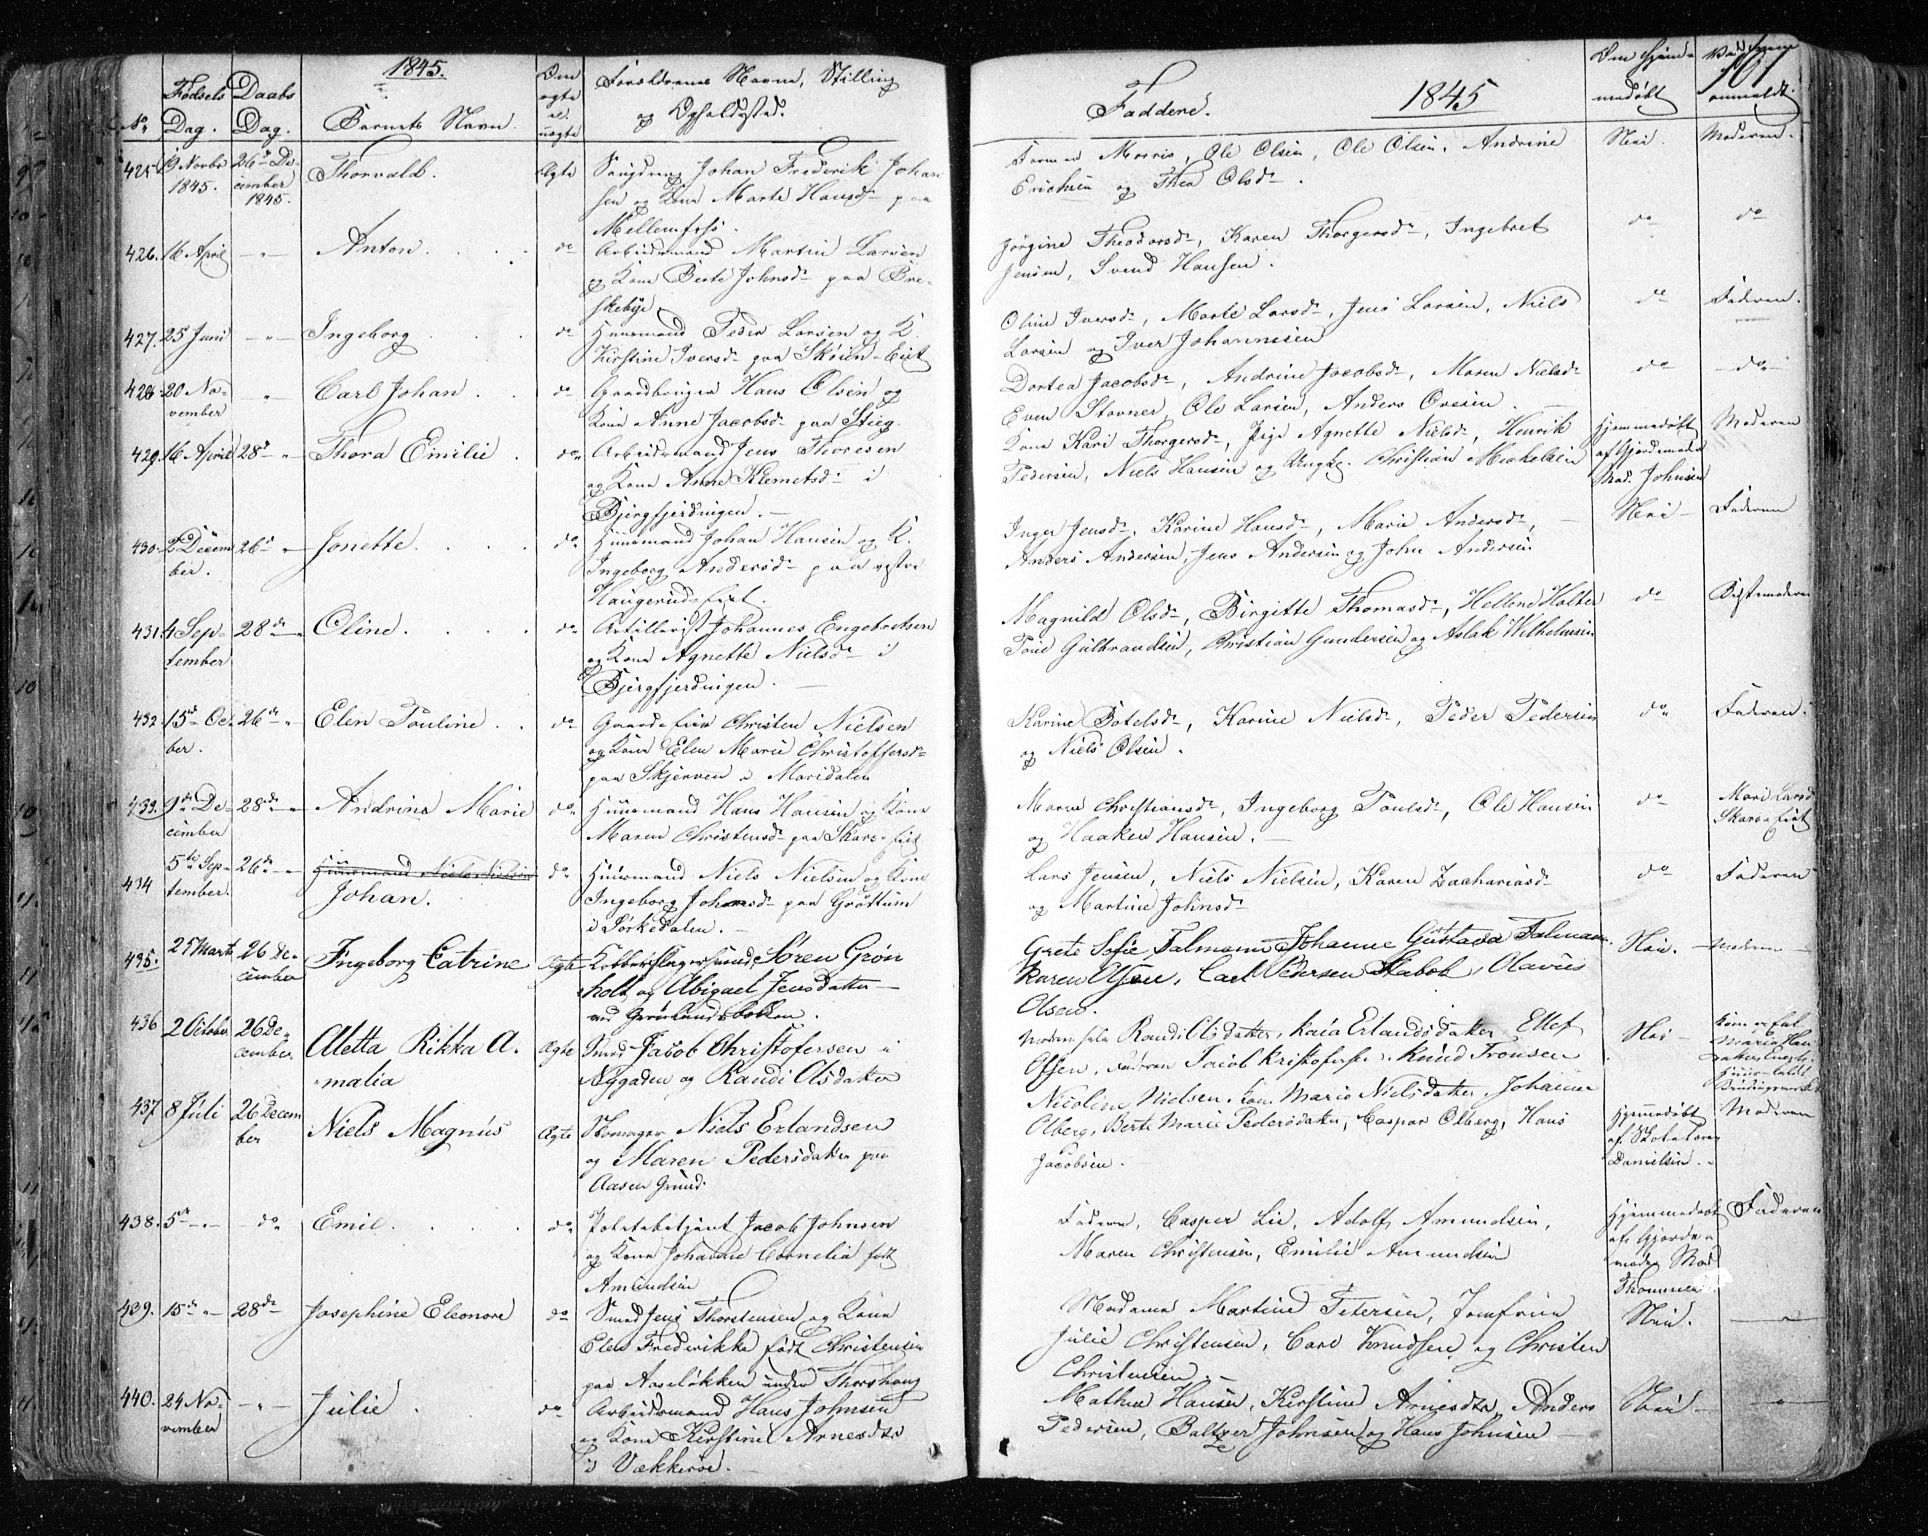 1845.
No.
Fødsels Dag.
Daabs Dag.
Barnets Navn.
Om ægte el. uægte
Forældrenes Navne, Stilling
og Opholdssted.
Faddere.
1845
Om hjemmedøbt
anmeldt.
425
19 Novbr 1845.
26de December 1845.
Thorvald.
Ægte
Johan Frederik Johan
sen og Kone Marte Hansd. paa
Ole Olsen, Ole Olsen, Andrine
Erichsen og Thea Olsd.
Nei.
Moderen.
426.
16 April
Anton.
do
Arbeidsmand Martin Larsen
og Kone Berte Johnsd. paa Bre-
skebye
Jørgine Theodorsd., Karen Thorgersd., Ingebret
Jensen, Svend Hansen.
do
do
427.
25 Juni
Ingeborg
do
Huusmand Peder Larsen og K.
Kirstine Iversd. paa Skøien-Eiet
Oline Iversd., Marte Larsd., Jens Larsen, Niels
Larsen og Iver Johannesen
do
Faderen.
428
20 November
Carl Johan
do
Gaardbruger Hans Olsen og
Kone Anne Jacobsd. paa Stieg.
Dortea Jacobsd., Andrine Jacobsd., Maren Nielsd.
Even Stovner, Ole Larsen, Anders Ovesen
do
do
429.
16 April
28de
Thora Emilie
do
Arbeidsmand Jens Thoresen
og Kone Anne Klemetsd. i
Bjergfjerdingen.
Kone Kari Thorgersd., Pige Agnette Nielsd., Henrik
Pedersen, Niels Hansen og Ungk. Christian Mickelsen
Hjemmedøbt
af Gjordemoder
Mad. Johnsen
Moderen
430.
2de December.
26de
Jonette
do
Huusmand Johan Hansen og K.
Ingeborg Andersd. paa vestre
Haugerud-eiet.
Inger Jensd., Karine Hansd., Marie Andersd.,
Anders Andersen, Jens Andersen og John Andersen
Nei
Faderen
431
4 September
28de
Oline.
do
Artillerist Johannes Engebretsen
og Kone Agnette Nielsd. i
Bjergfjerdingen.
Magnild Olsd., Birgitte Thomasd., Hellene Holter
Tone Gulbrandsen, Christian Gundersen og Aslak Wilhelmsen
do
Bestemoderen
432
15de Oc-
ber.
26de
Elen Pauline
do
Christen Nielsen
og Kone Elen Marie Christoffersd.
paa Skjerven i Maridalen
Karine Botelsd., Karine Nielsd., Peder Pedersen
og Niels Olsen.
do
Faderen.
433.
9de December
28de
Andrine Marie
do
Huusmand Hans Hansen og Kone
Maren Christensd. paa Skar-eiet
Maren Christiansd., Ingeborg Paulsd., Ole Hansen
og Haaken Hansen.
do
Mari Larsd
Skar-eiet
434
5te September
26de
Huusmand Niels Nielsen
Johan.
do
Huusmand Niels Nielsen og Kone
Ingeborg Johansd. paa Grøttum
i Sørkedalen.
Lars Jensen, Niels Nielsen, Karen Zachariasd.
og Martine Johnsd.
do
Faderen
435.
25 Marts
26 December
Ingeborg Catrine
Ægte
Kobberslagersvend, Søren Grøn
holt og Abigael Jensdatter
ved Grønlandsbakken.
Grete Sofie Talmann, Johanne Gustava Talmann.
Karen Olsen, Carl Pedersen Skabok, Olavus
Olsen.
Nei.
436
2 October
26 December
Aletta Rikka A.
malia
Ægte
Smed Jacob Christofersen i
Nygaden og Randi Olsdatter
Moderen selv Randi Olsdatter, Karia Erlandsdatter, Ellef
Olsen, Faderen Jacob Kristofersen, Knud Tronsen
Nei
437
8 Juli
26 December
Niels Magnus
Ægte
Skomager Niels Erlandsen
og Maren Pedersdatter paa
Aasen Grund.
Nicoline Nielsen, Kone Marie Nielsdatter, Johanne
Olberg, Berte Marie Pedersdatter, Caspar Olberg, Hans
Jacobsen.
Hjemmedøbt
af
Danielsen.
Moderen
438.
5te
do
Emil.
do
Politibetjent Jacob Johnsen
og Kone Johanne Cornelia født
Amundsen
Faderen, Casper Lie, Adolf Amundsen,
Maren Christensen, Emilie Amundsen
Hjemmedøbt
af Gjorde-
moder Mad
Thommesen
Faderen
439.
15de
28de
Josephine Eleonore
do
Smed Jens Thorstensen og Kone
Elen Fredrikke født Christensen
paa Aaseløkken under Thorshoug
Madame Martine Petersen, Jomfruen
Julie Christensen, Carl Knudsen og Christen
Christensen.
Nei.
440.
24 November
Julie
do
Arbeidsmand Hans Johnsen
og Kone Kirstine Arnesdtr
i Vækkerøe.
Mathea Hansen, Kirstine Arnesdtr, Anders
Pedersen, Baltzer Johnsen og Hans Johnsen
Nei